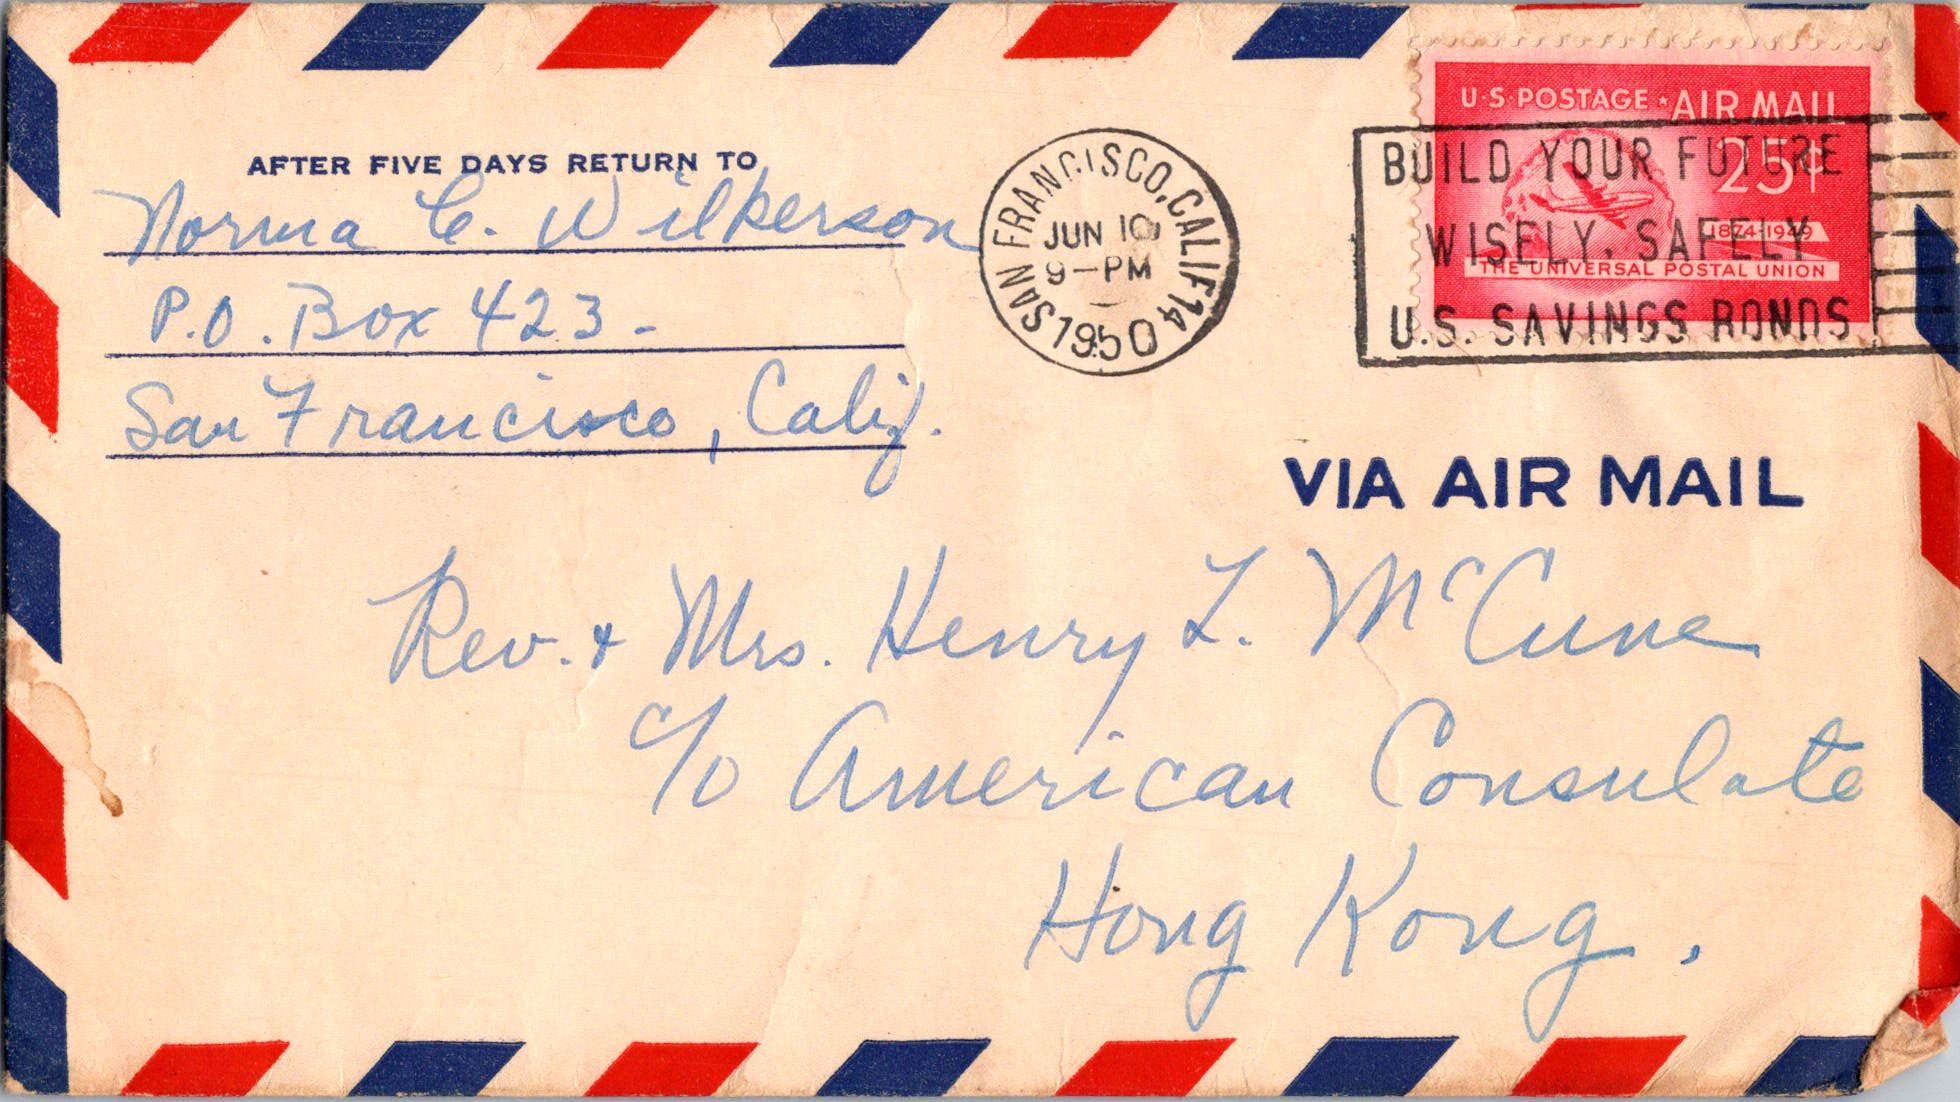 AFTER FIVE DAYS RETURN TO
Norma C. Wilkerson
P.O. Box 423-
San Francisco, Calif.
SAN FRANCISCO, CALIF 14
JUN 10
9-PM
1950
U·S·POSTAGE ★ AIR MAIL
25¢
1874-1949
THE UNIVERSAL POSTAL UNION
BUILD YOUR FUTURE
WISELY, SAFELY
U.S. SAVINGS BONDS
VIA AIR MAIL
Rev. & Mrs. Henry L. McCune
c/o American Consulate
Hong Kong.